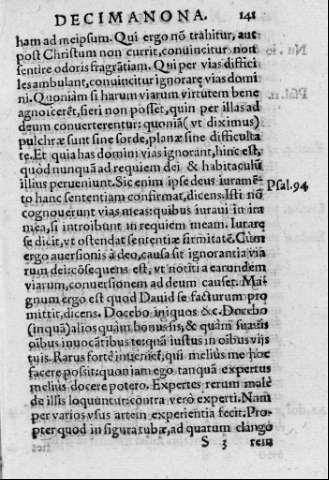 DECIMANONA. 141
ham ad meipsum. Qui ergo nõ trahitur, aut
post Christum non currit, conuincitur non
sentire odoris fragrãtiam. Qui per vias diffici
les ambulant, conuincitur ignorare vias domi
ni. Quoniàm si harum viarum virtutem bene
agnoicerẽt, fieri non posset, quin per illas ad
deum conuerterentur: quoniã (vt diximus)
pulchræ sunt sine sorde, planæ sine difficulta
te. Et quia has domini vias ignorant, hinc est,
quòd nunquã ad requiem dei & habitaculũ
illius perueniunt. Sic enim ipse deus iuramẽ-
to hanc sententiam confirmat, dicens. Isti nõ
Psal. 94
cognouerunt vias meas: quibus iuraui in ira
mea, si introibunt in requiem meam. Iurare
se dicit, vt ostendat sententiæ firmitatẽ. Cùm
ergo auersionis à deo, causa sit ignorantia via
rum dei: cõsequens est, vt notitia earundem
viarum, conuersionem ad deum causet. Ma-
gnum ergo est quod Dauid se facturum pro
mittit, dicens. Docebo iniquos &c. Docebo
(inquã) alios quàm bonus sis, & quàm suauis
oĩbus inuocãtibus te: quã iustus in oĩbus vijs
tuis. Rarus fortè inueniet, qui meliùs me hoc
facere possit: quoniam ego tanquã expertus
meliùs docere potero. Expertes rerum malè
de illis loquuntur: contra verò experti. Nam
per varios vsus artem experientia fecit. Pro-
pter quod in figura tubæ, ad quatum clango
S 3 rem